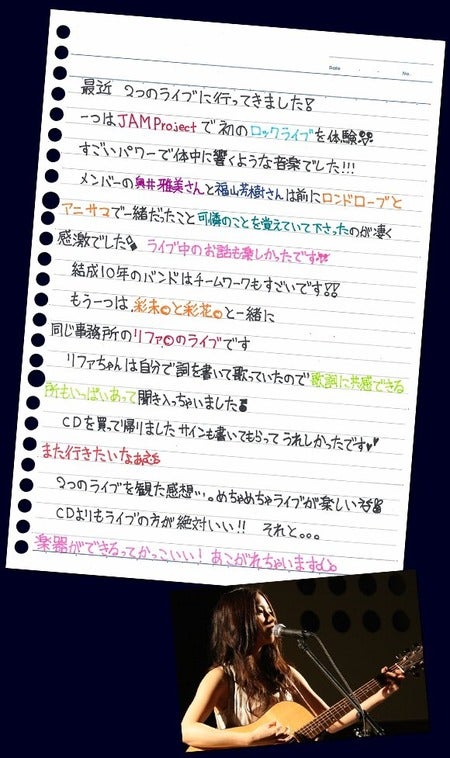 Date
No.
最近 2つのライブに行ってきました!
一つはJAM Projectで初のロックライブを体験!!
すごいパワーで体中に響くような音楽でした!!!
メンバーの奥井雅美さんと福山芳樹さんは前にロンドローブと
アニサマで一緒だったこと可憐のことを覚えていて下さったのが凄く
感激でした ライブ中のお話も楽しかったです
結成10年のバンドはチームワークもすごいです!!
もう一つは、彩未◎と彩花◎と一緒に
同じ事務所のリファ◎のライブです
リファちゃんは自分で詞を書いて歌っていたので歌詞に共感できる
所もいっぱいあって聞き入っちゃいました
CDを買って帰りました サインも書いてもらって うれしかったです♥♥
また行きたいなぁ
2つのライブを観た感想…。めちゃめちゃライブが楽しい
CDよりもライブの方が絶対いい!! それと。。。
楽器ができるってかっこいい! あこがれちゃいます